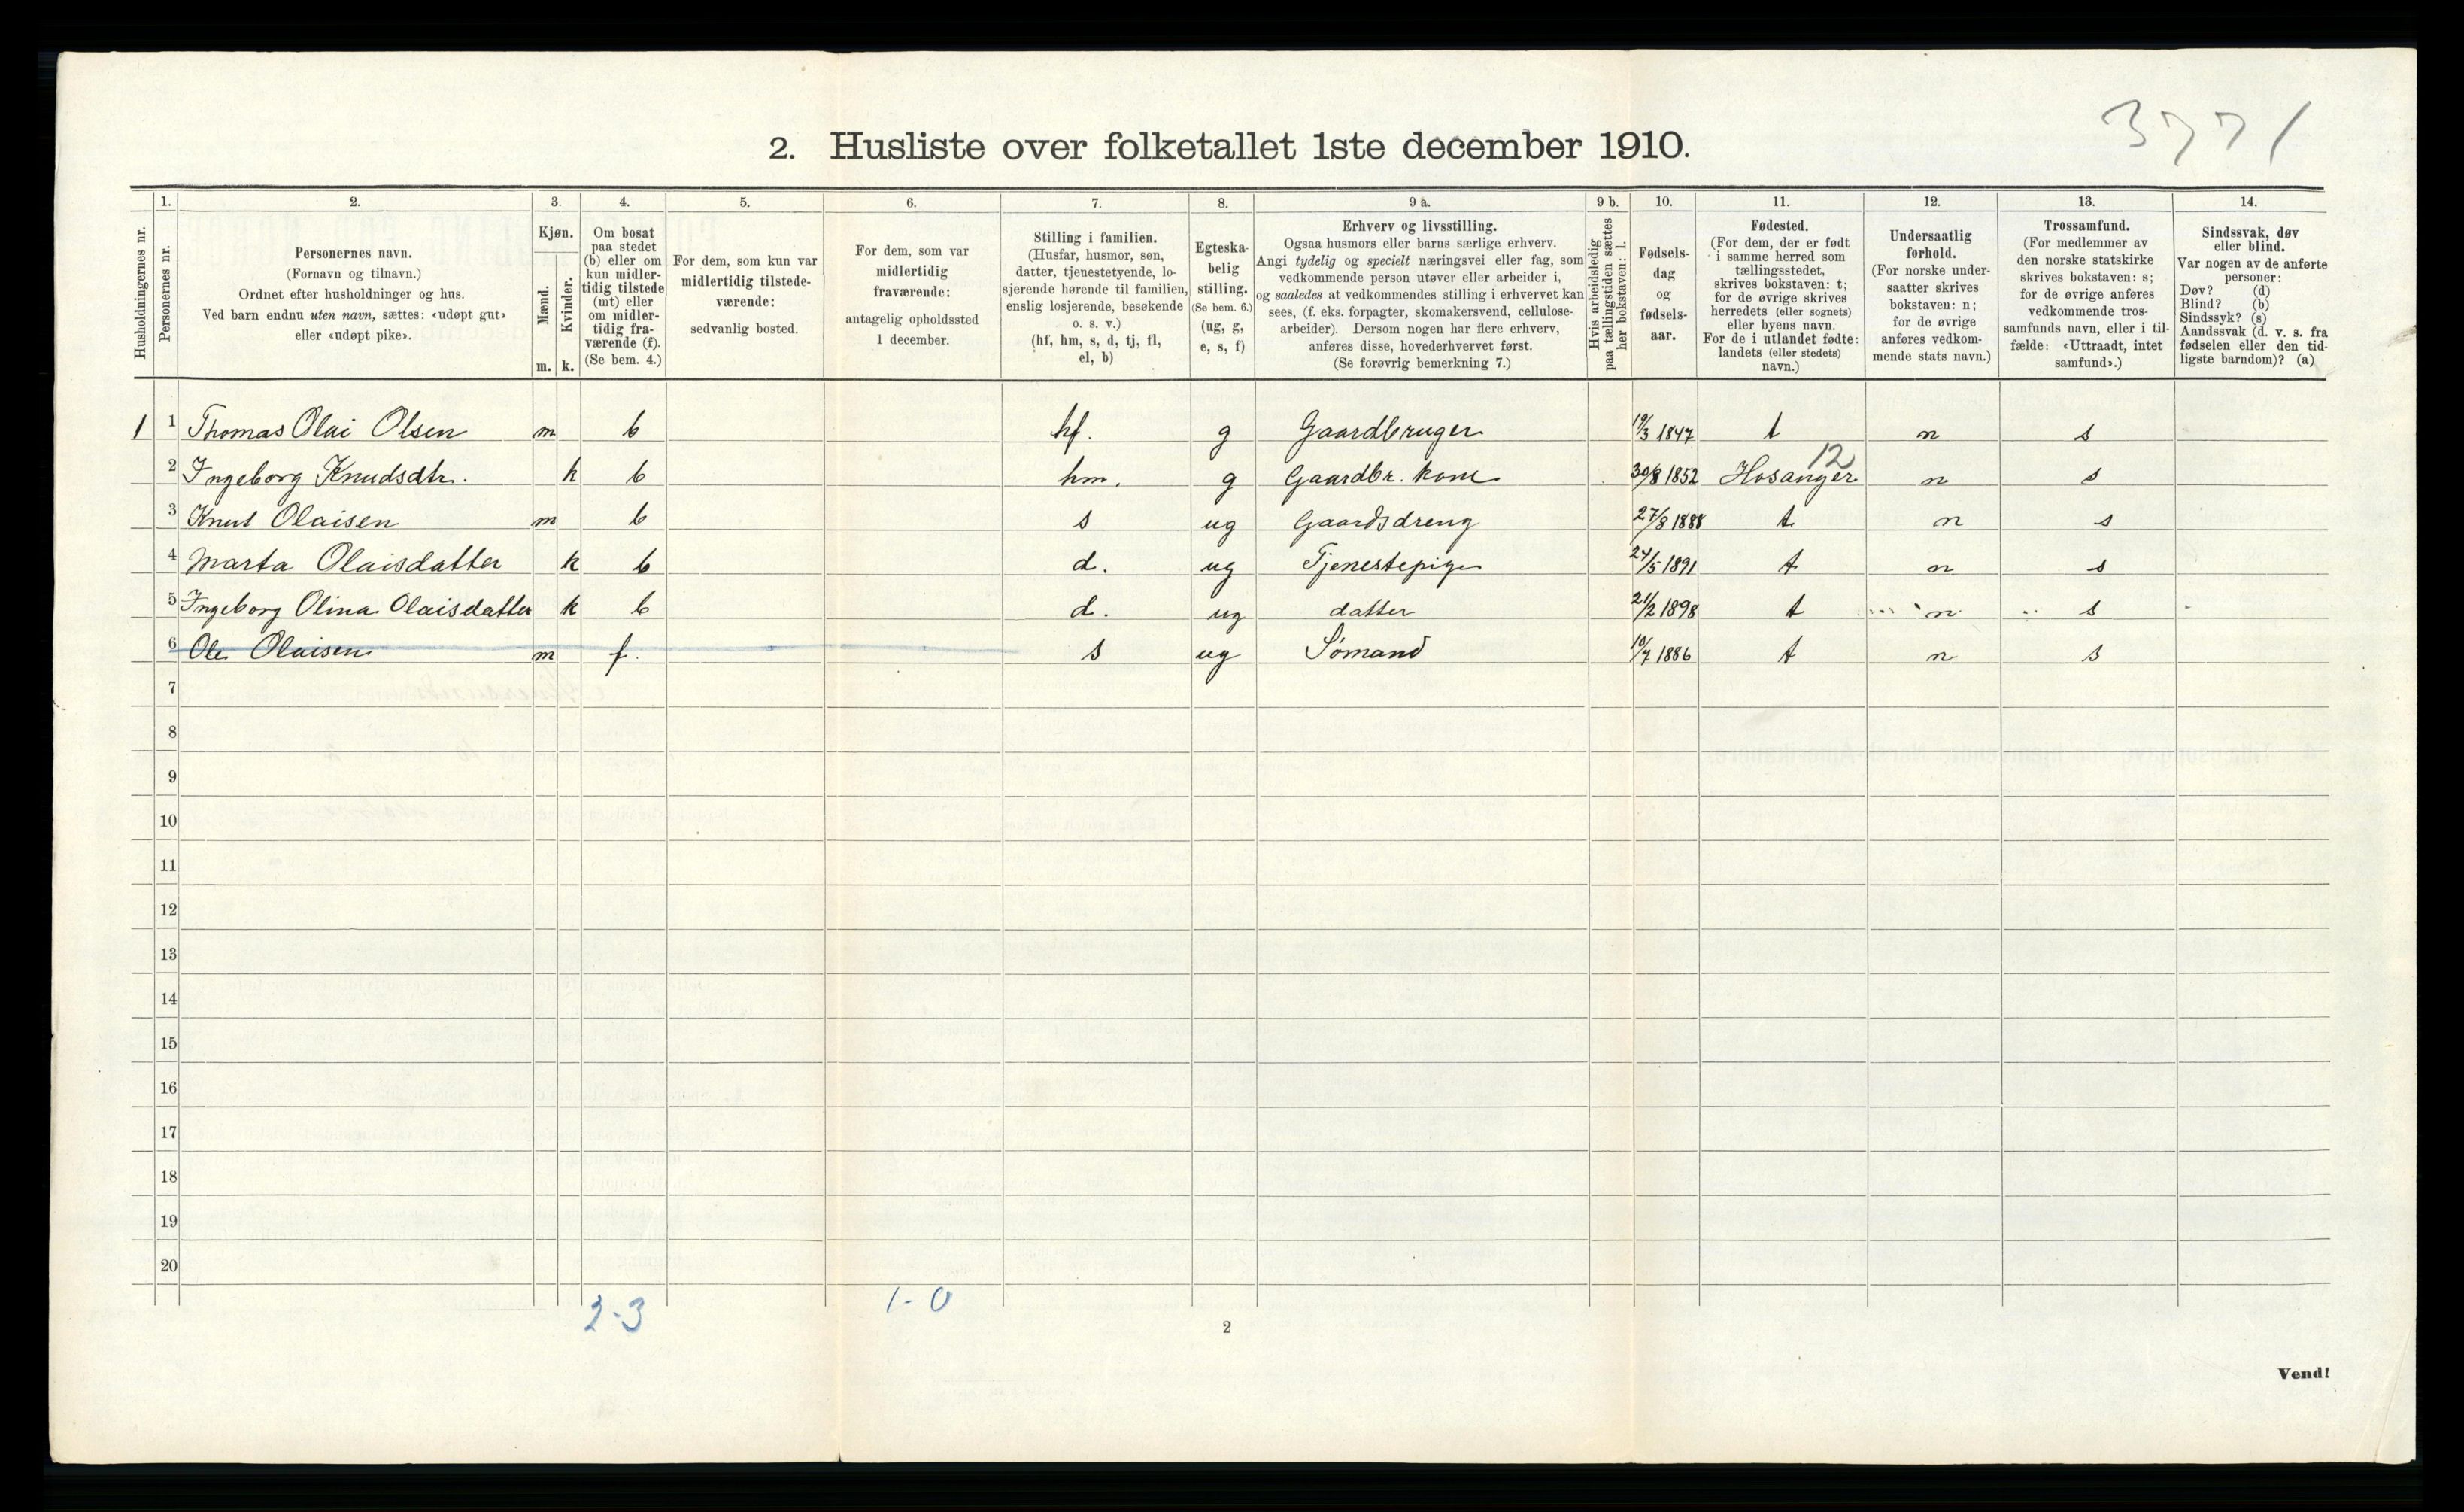 3771
2. Husliste over folketallet 1ste december 1910.
1. 2. 3. 4. 5. 6. 7. 8. 9 a. 9 b. 10. 11. 12. 13. 14.
Husholdningernes nr.
Personernes nr.
Personernes navn.
(Fornavn og tilnavn.)
Ordnet efter husholdninger og hus.
Ved barn endnu uten navn, sættes: «udøpt gut»
eller «udøpt pike».
Kjøn.
Mænd.
Kvinder.
m. k.
Om bosat
paa stedet
(b) eller om
kun midler-
tidig tilstede
(mt) eller
om midler-
tidig fra-
værende (f).
(Se bem. 4.)
For dem, som kun var
midlertidig tilstede-
værende:
sedvanlig bosted.
For dem, som var
midlertidig
fraværende:
antagelig opholdssted
1 december.
Stilling i familien.
(Husfar, husmor, søn,
datter, tjenestetyende, lo-
sjerende hørende til familien,
enslig losjerende, besøkende
o. s. v.)
(hf, hm, s, d, tj, fl,
el, b)
Egteska-
belig
stilling.
(Se bem. 6.)
(ug, g,
e, s, f)
Erhverv og livsstilling.
Ogsaa husmors eller barns særlige erhverv.
Angi tydelig og specielt næringsvei eller fag, som
vedkommende person utøver eller arbeider i,
og saaledes at vedkommendes stilling i erhvervet kan
sees, (f. eks. forpagter, skomakersvend, cellulose-
arbeider). Dersom nogen har flere erhverv,
anføres disse, hovederhvervet først.
(Se forøvrig bemerkning 7.)
Hvis arbeidsledig
paa tællingstiden sættes
her bokstaven: l.
Fødsels-
dag
og
fødsels-
aar.
Fødested.
(For dem, der er født
i samme herred som
tællingsstedet,
skrives bokstaven: t;
for de øvrige skrives
herredets (eller sognets)
eller byens navn.
For de i utlandet fødte:
landets (eller stedets)
navn.)
Undersaatlig
forhold.
(For norske under-
saatter skrives
bokstaven: n;
for de øvrige
anføres vedkom-
mende stats navn.)
Trossamfund.
(For medlemmer av
den norske statskirke
skrives bokstaven: s;
for de øvrige anføres
vedkommende tros-
samfunds navn, eller i til-
fælde: «Uttraadt, intet
samfund».)
Sindssvak, døv
eller blind.
Var nogen av de anførte
personer:
Døv? (d)
Blind? (b)
Sindssyk? (s)
Aandssvak (d. v. s. fra
fødselen eller den tid-
ligste barndom)? (a)
1 1 Thomas Olai Olsen m b hf. g Gaardbruger 19/3 1847 t n s
12
2 Ingeborg Knudsdtr. k b hm. g Gaardbr. kone 30/8 1852 Hosanger n s
3 Knut Olaisen m b s ug Gaardsdreng 27/8 1888 t n s
4 Marta Olaisdatter k b d. ug Tjenestepige 24/5 1891 t n s
5 Ingeborg Olina Olaisdatter k b d. ug datter 21/2 1898 t n s
6 Ole Olaisen m f. s ug Sømand 10/7 1886 t n s
7
8
9
10
11
12
13
14
15
16
17
18
19
20
2-3 1-0
2
Vend!